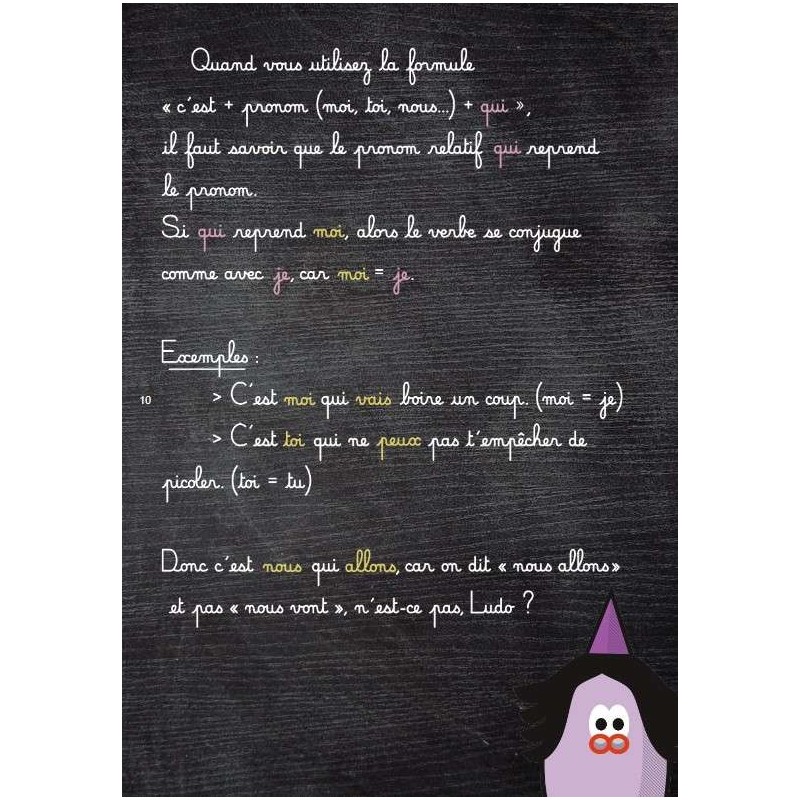 Quand vous utilisez la formule
« c'est + pronom (moi, toi, nous...) + qui »,
il faut savoir que le pronom relatif qui reprend
le pronom.
Si qui reprend moi, alors le verbe se conjugue
comme avec je, car moi = je.
Exemples :
10
> C'est moi qui vais boire un coup. (moi = je)
> C'est toi qui ne peux pas t'empêcher de
picoler. (toi = tu)
Donc c'est nous qui allons, car on dit « nous allons»
et pas « nous vont », n'est-ce pas, Ludo ?